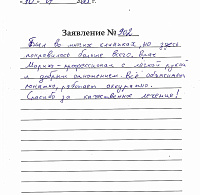 Заявление № 902
Был во многих клиниках, но здесь
понравилось больше всего. Врач
профессионал с лёгкой рукой
и добрым отношением. Всё объясняет
понятно, работает аккуратно.
Спасибо за качественное лечение!